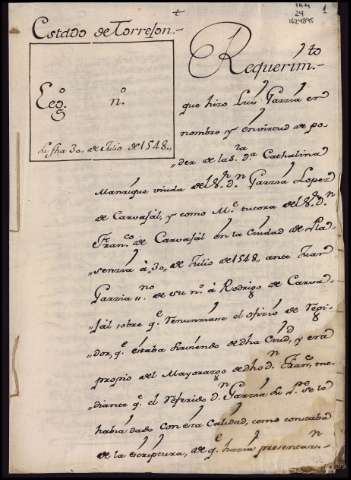 Estado de Torrejon.-
1
Requerim.to
Leg.o n.o
su fha 30,, de Julio de 1548,,
que hizo Luis Garzia en
nombre y en virtud de po-
der de la S.ra D.a Cathalina
Manrique viuda del S.r D.n Garzia Lopez
de Carvajál, y como M.e tutora del S.r D.n
Fran.co de Carvajál en la Ciudad de Plas
senzia á 30,, de Julio de 1548,, ante Juan
Garzia ss.no de su n.o á Rodrigo de Carva-
jál sobre q.e renunciase el ofizio de Regi-
dor, q.e estaba sirviendo de dha Ciud, y era
propio del Mayorazgo de dho D.n Fran.co, me-
diante q.e el referido D.n Garzia su P.e se lo
habia dado con esa Calidad, como constaba
de la escriptura, de q.e hacia presentazi-